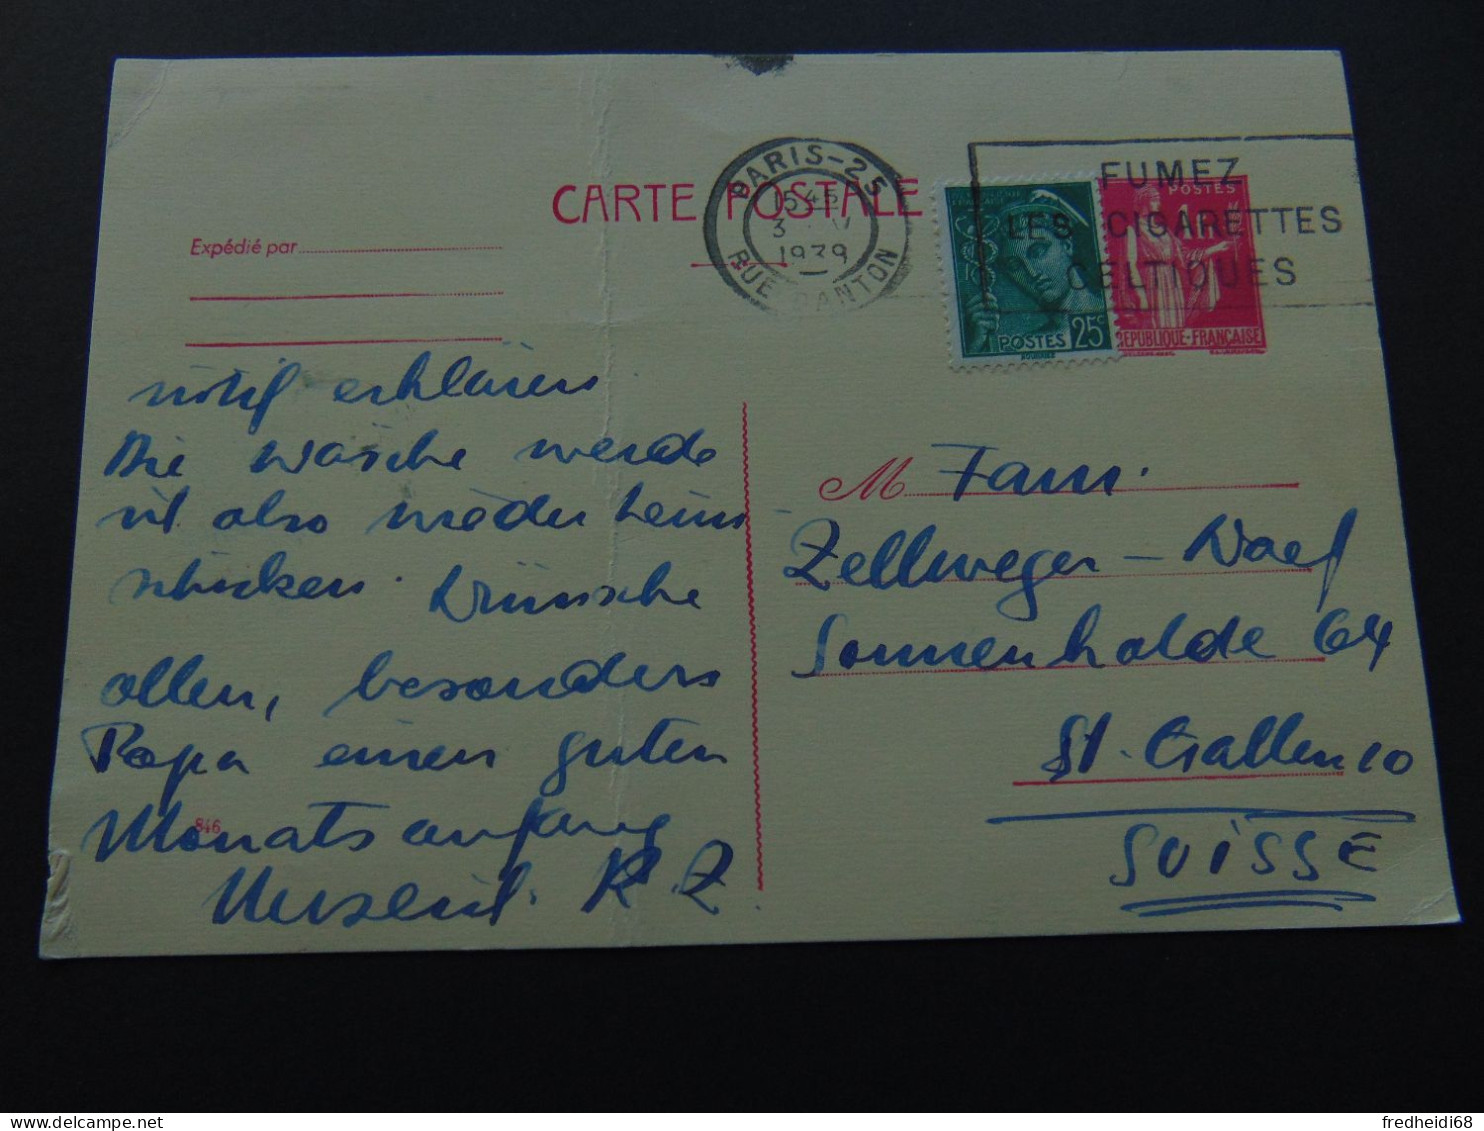 CARTE POSTALE
Expédié par
PARIS-25
15 45
3
1939
RUE DANTON
FUMEZ
LES CIGARETTES
CELTIQUES
POSTES 25c
POSTES
REPUBLIQUE-FRANÇAISE
erklären.
Die Wäsche werde
also wieder heim
schicken. Wünsche
allen, besonders
Papa einen guten
Monatsanfang
846
R. Z.
M Fam.
Zellweger - Naef
Sonnenhalde 64
St. Gallen 10
SUISSE
fredheidi68